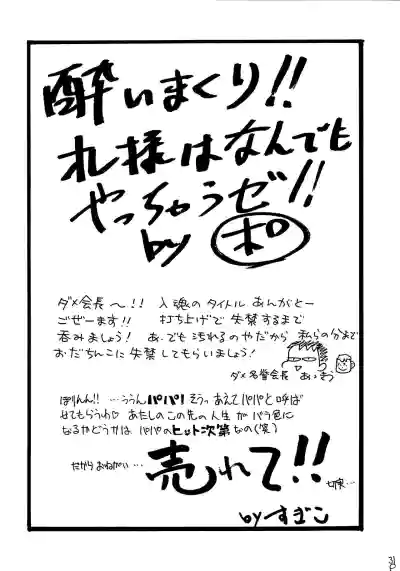 酔いまくり!!
オレ様はなんでも
やっちゃうゼ!!
by ポ
ダメ会長〜!! 入魂のタイトル あんがとー
ござーます!! 打ち上げで失禁するまで
呑みましょう! あ、でも汚れるのやだから 私らの分まで
おだちんこに失禁してもらいましょう!
ダメ名誉会長
ぽりりん!! …ううんパパ! そうっ あえてパパと呼ば
せてもらうわ♡ あたしのこの先の人生がバラ色に
なるかどうかは パパのヒット次第なの(笑)
だから おねがい…
売れて!!
切実…
by すぎこ
31P